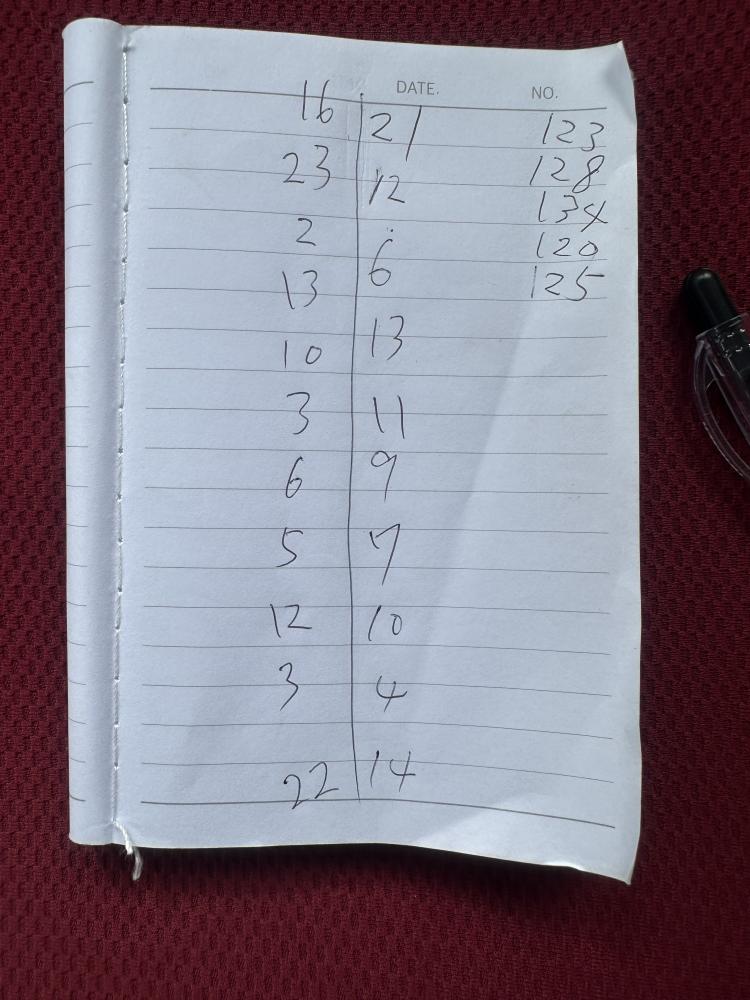 DATE. NO.
16 21 123
23 12 128
2 6 134
13 13 120
10 11 125
3 9
6 7
5 10
12 4
3 14
22